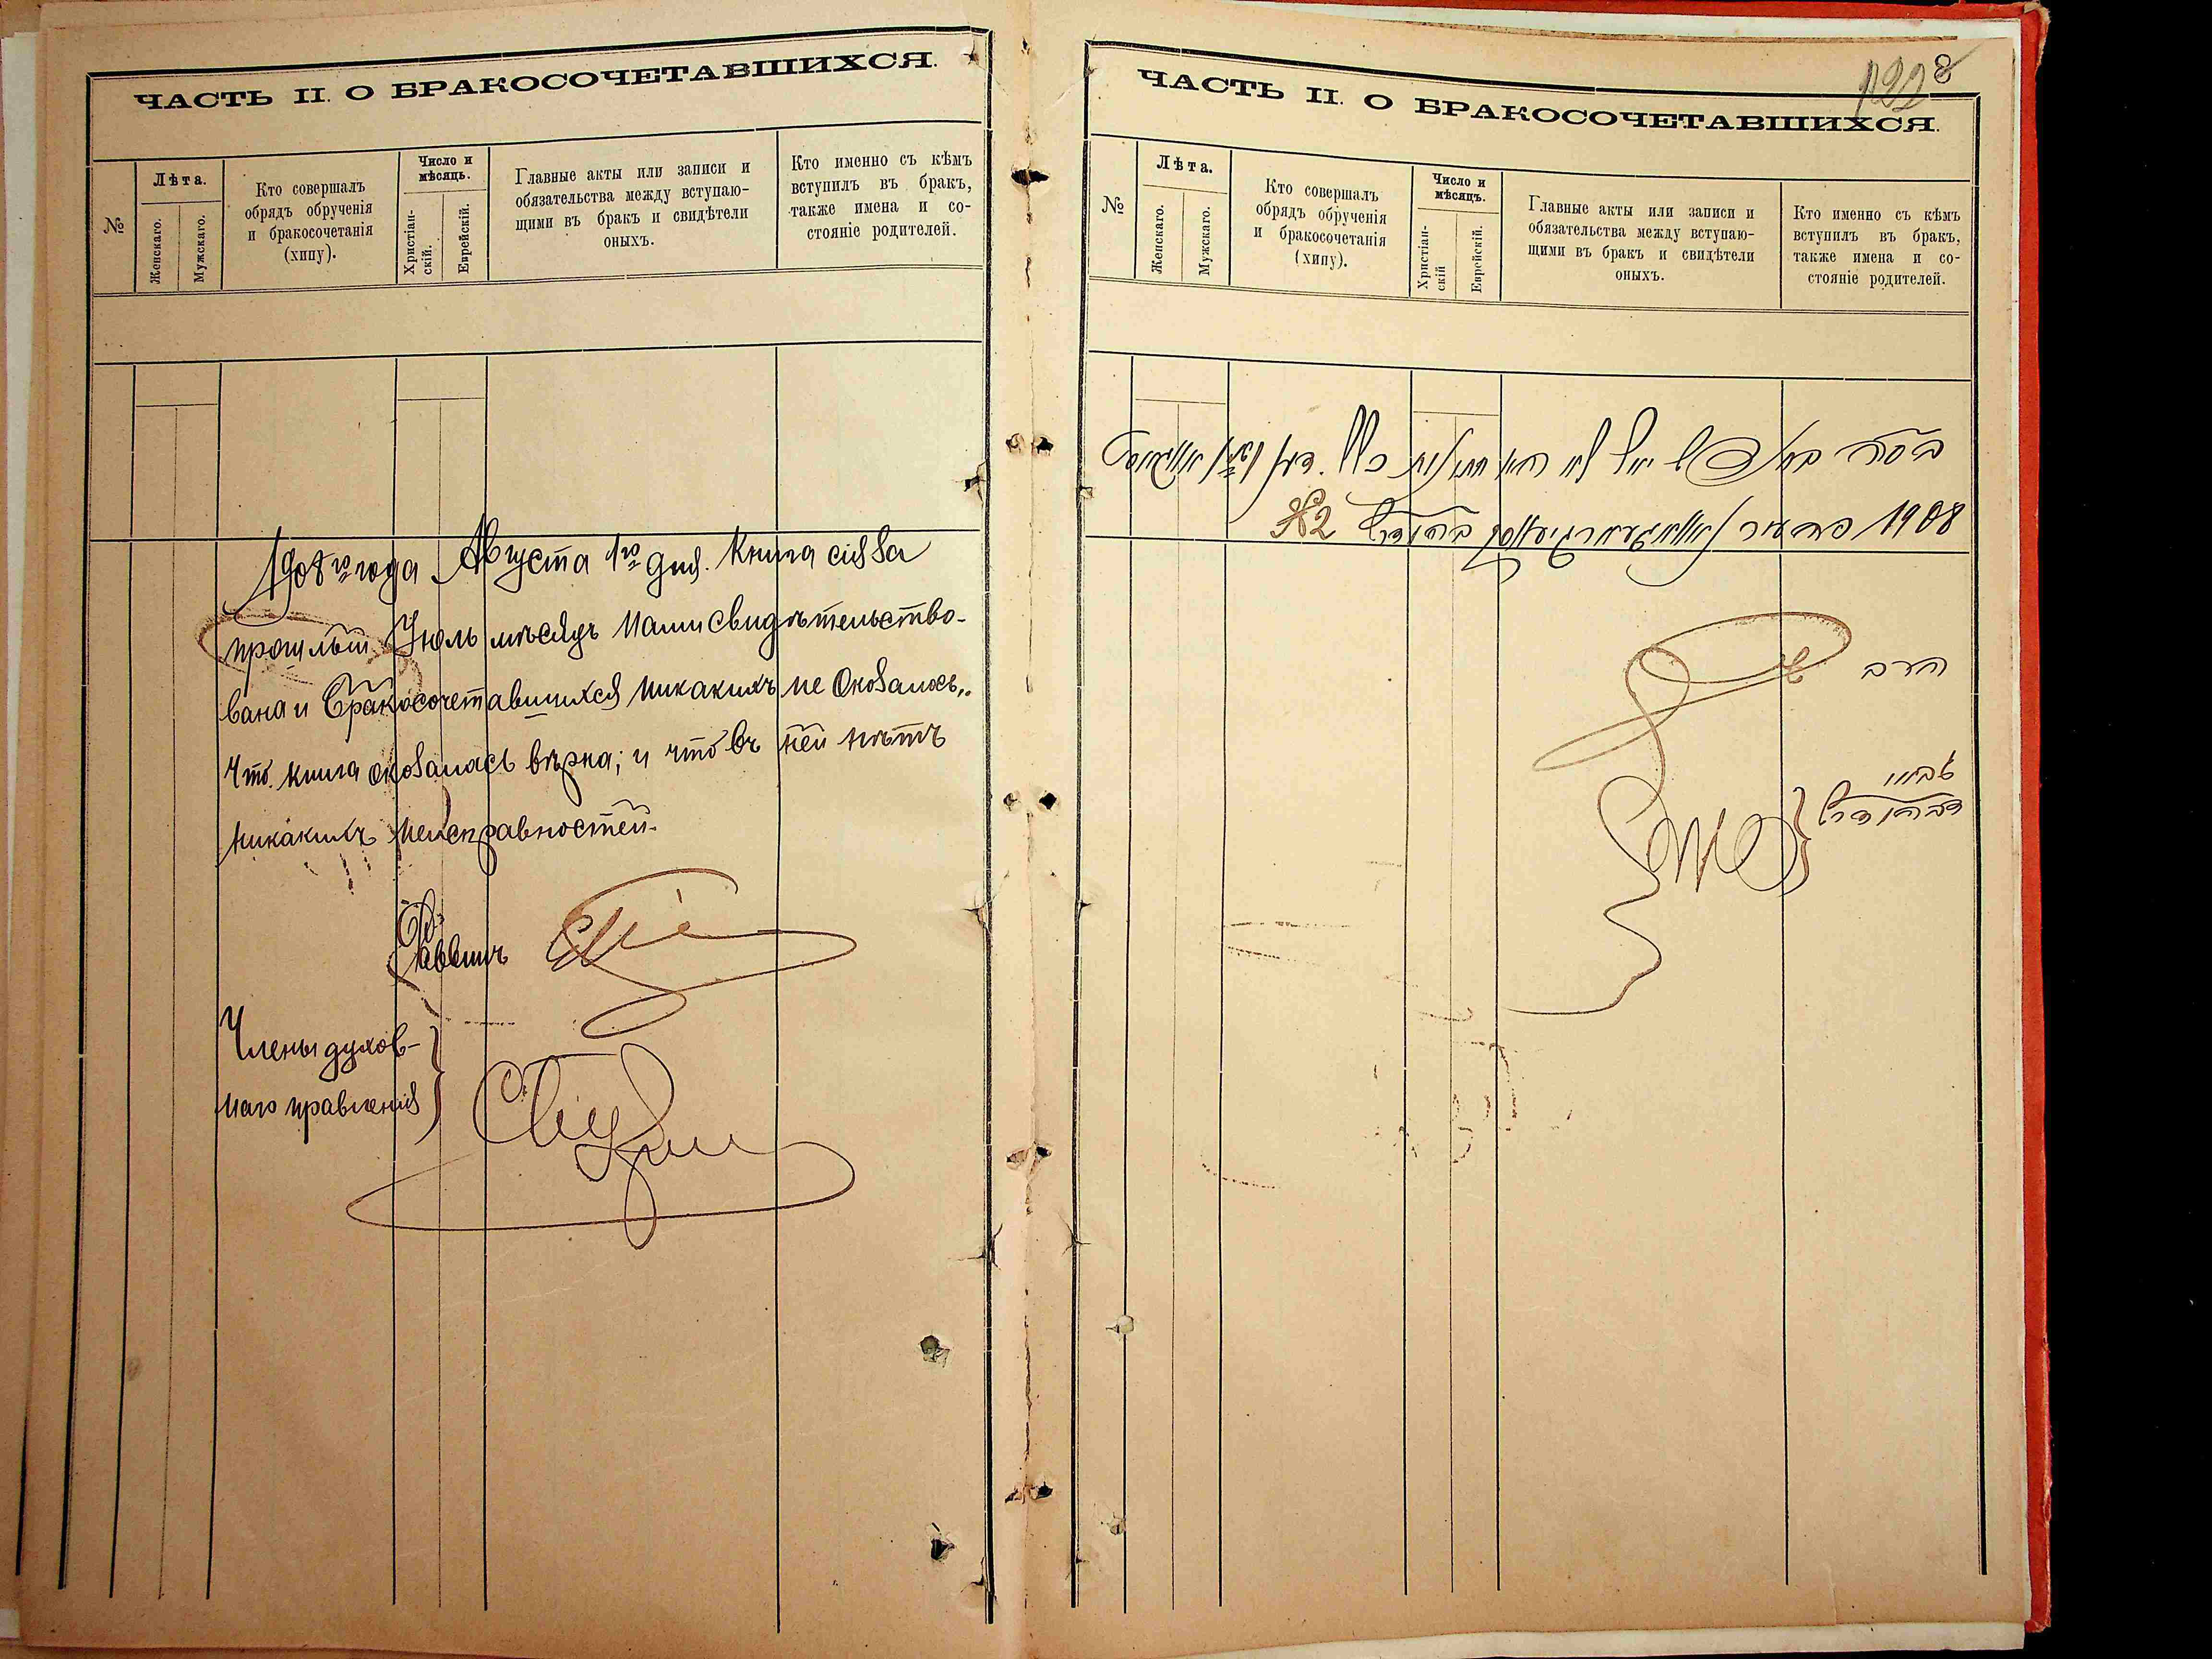 ЧАСТЬ II. О БРАКОСОЧЕТАВШИХСЯ.
№
Лѣта.
Женскаго.
Мужскаго.
Кто совершалъ
обрядъ обрученія
и бракосочетанія
(хипу).
Число и
мѣсяцъ.
Христіан-
скій.
Еврейскій.
Главные акты или записи и
обязательства между вступаю-
щими въ бракъ и свидѣтели
оныхъ.
Кто именно съ кѣмъ
вступилъ въ бракъ,
также имена и со-
стояніе родителей.
1908 го года Августа 1го дня. Книга сія за
прошлый Іюль мѣсяцъ нами свидѣтельство-
вана и бракосочетавшихся никакихъ не оказалось,
что книга оказалась вѣрна; и что въ ней нѣтъ
никакихъ неисправностей.
Раввинъ
Члены духов-
наго правленія
8
ЧАСТЬ II. О БРАКОСОЧЕТАВШИХСЯ.
№
Лѣта.
Женскаго.
Мужскаго.
Кто совершалъ
обрядъ обрученія
и бракосочетанія
(хипу).
Число и
мѣсяцъ.
Христіан-
скій
Еврейскій.
Главные акты или записи и
обязательства между вступаю-
щими въ бракъ и свидѣтели
оныхъ.
Кто именно съ кѣмъ
вступилъ въ бракъ,
также имена и со-
стояніе родителей.
1908
הרב